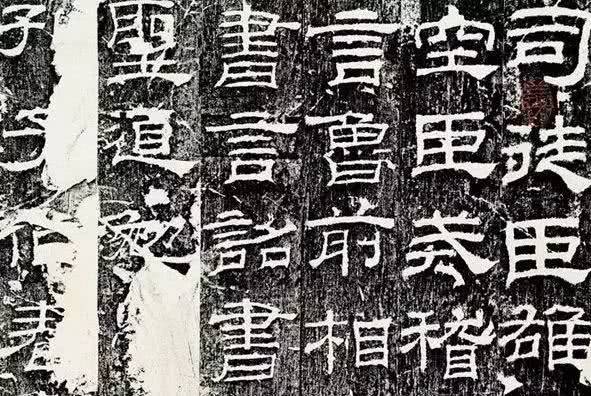 司徒臣雄
空臣戒稽
言魯前相
書言詔書
聖道勉
孔子作春